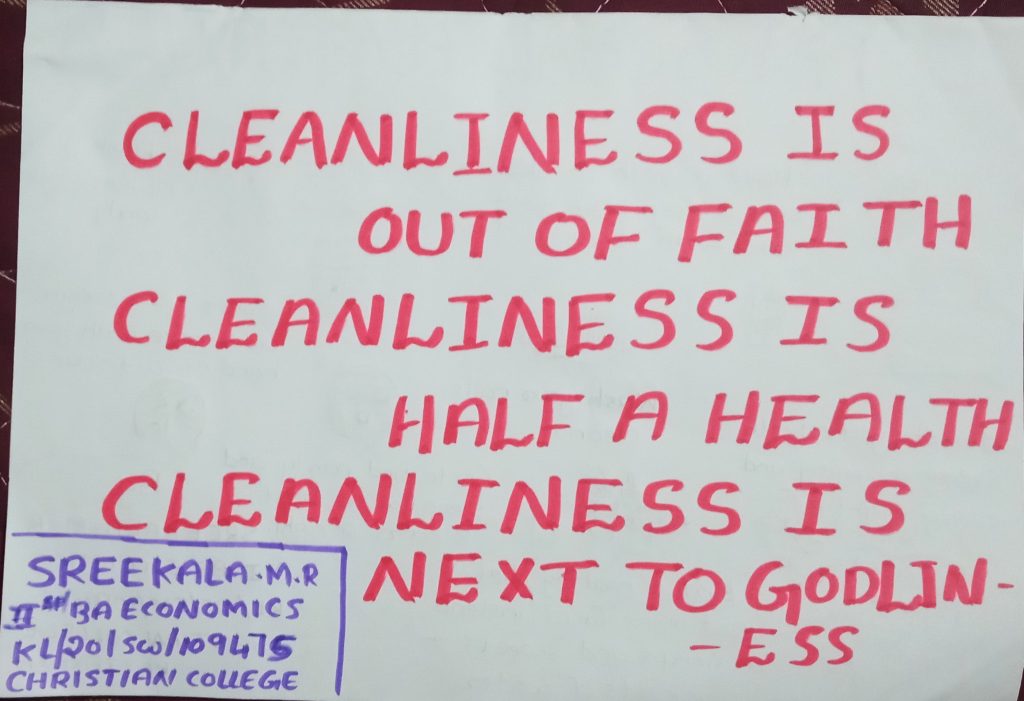 CLEANLINESS IS
OUT OF FAITH
CLEANLINESS IS
HALF A HEALTH
CLEANLINESS IS
NEXT TO GODLIN-
- ESS
SREEKALA.M.R
BA ECONOMICS
KL/20/SW/109475
CHRISTIAN COLLEGE